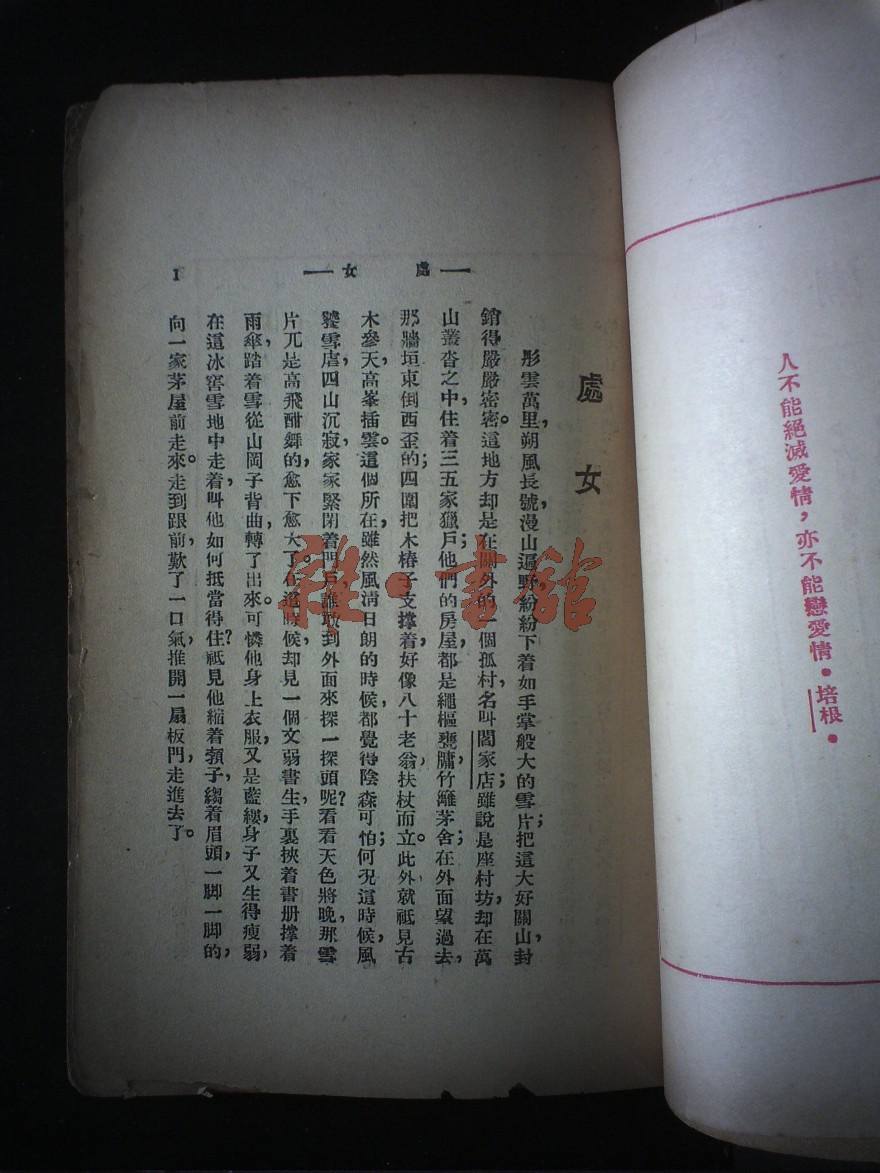 人不能絕滅愛情，亦不能戀愛情·培根·
處女
1
處女
彤雲萬里，朔風長號，漫山遍野，紛紛下着如手掌般大的雪片；把這大好關山，封
鎖得嚴嚴密密。這地方却是在關外的一個孤村，名叫閻家店；雖說是座村坊，却在萬
山叢沓之中，住着三五家獵戶；他們的房屋，都是繩樞甕牖，竹籬茅舍；在外面望過去，
那牆垣東倒西歪的；四圍把木樁子支撑着，好像八十老翁扶杖而立。此外就祗見古
木參天，高峯插雲。這個所在，雖然風淸日朗的時候，都覺得陰森可怕；何況這時候風
饕雪虐，四山沉寂，家家緊閉着門戶，誰敢到外面來探一探頭呢？看看天色將晚，那雪
片兀是高飛酣舞的，愈下愈大了。在這時候，却見一個文弱書生，手裏挾着書册，撑着
雨傘，踏着雪，從山岡子背曲，轉了出來。可憐他身上衣服，又是藍縷，身子又生得瘦弱，
在這冰窖雪地中走着，叫他如何抵當得住？祗見他縮着頸子，縐着眉頭，一脚一脚的，
向一家茅屋前走來。走到跟前，歎了一口氣，推開一扇板門，走進去了。
雜·書館